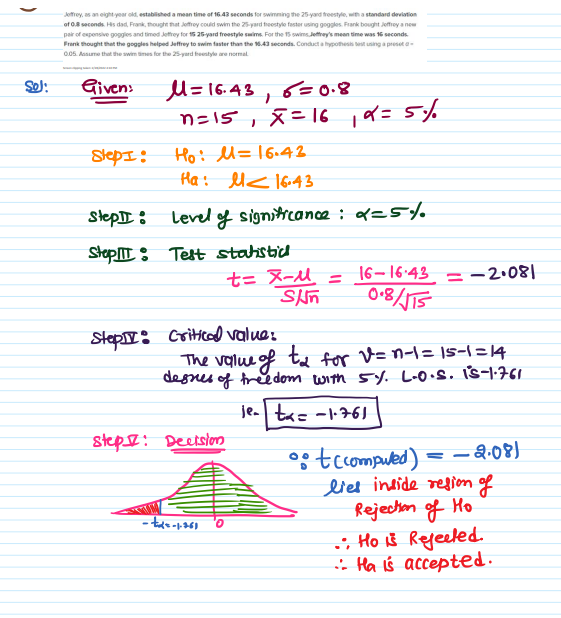 Jeffrey, as an eight-year old, established a mean time of 16.43 seconds for swimming the 25-yard freestyle, with a standard deviation
of 0.8 seconds. His dad, Frank, thought that Jeffrey could swim the 25-yard freestyle faster using goggles. Frank bought Jeffrey a new
pair of expensive goggles and timed Jeffrey for 15 25-yard freestyle swims. For the 15 swims, Jeffrey's mean time was 16 seconds.
Frank thought that the goggles helped Jeffrey to swim faster than the 16.43 seconds. Conduct a hypothesis test using a preset α =
0.05. Assume that the swim times for the 25-yard freestyle are normal.
Sol: Given: μ = 16.43 , σ = 0.8
n = 15 , x̄ = 16 , α = 5%
Step I : H₀ : μ = 16.43
Ha : μ < 16.43
Step II : Level of significance : α = 5%
Step III : Test statistic
t = x̄-μ / S/√n = 16-16.43 / 0.8/√15 = -2.081
Step IV : Critical value:
The value of tα for ν = n-1 = 15-1 = 14
degrees of freedom with 5% L.O.S. is -1.761
ie. tα = -1.761
Step V : Decision
∵ t(computed) = -2.081
lies inside region of
Rejection of H₀
∴ H₀ is Rejected.
∴ Ha is accepted.
-tα = -1.761
0